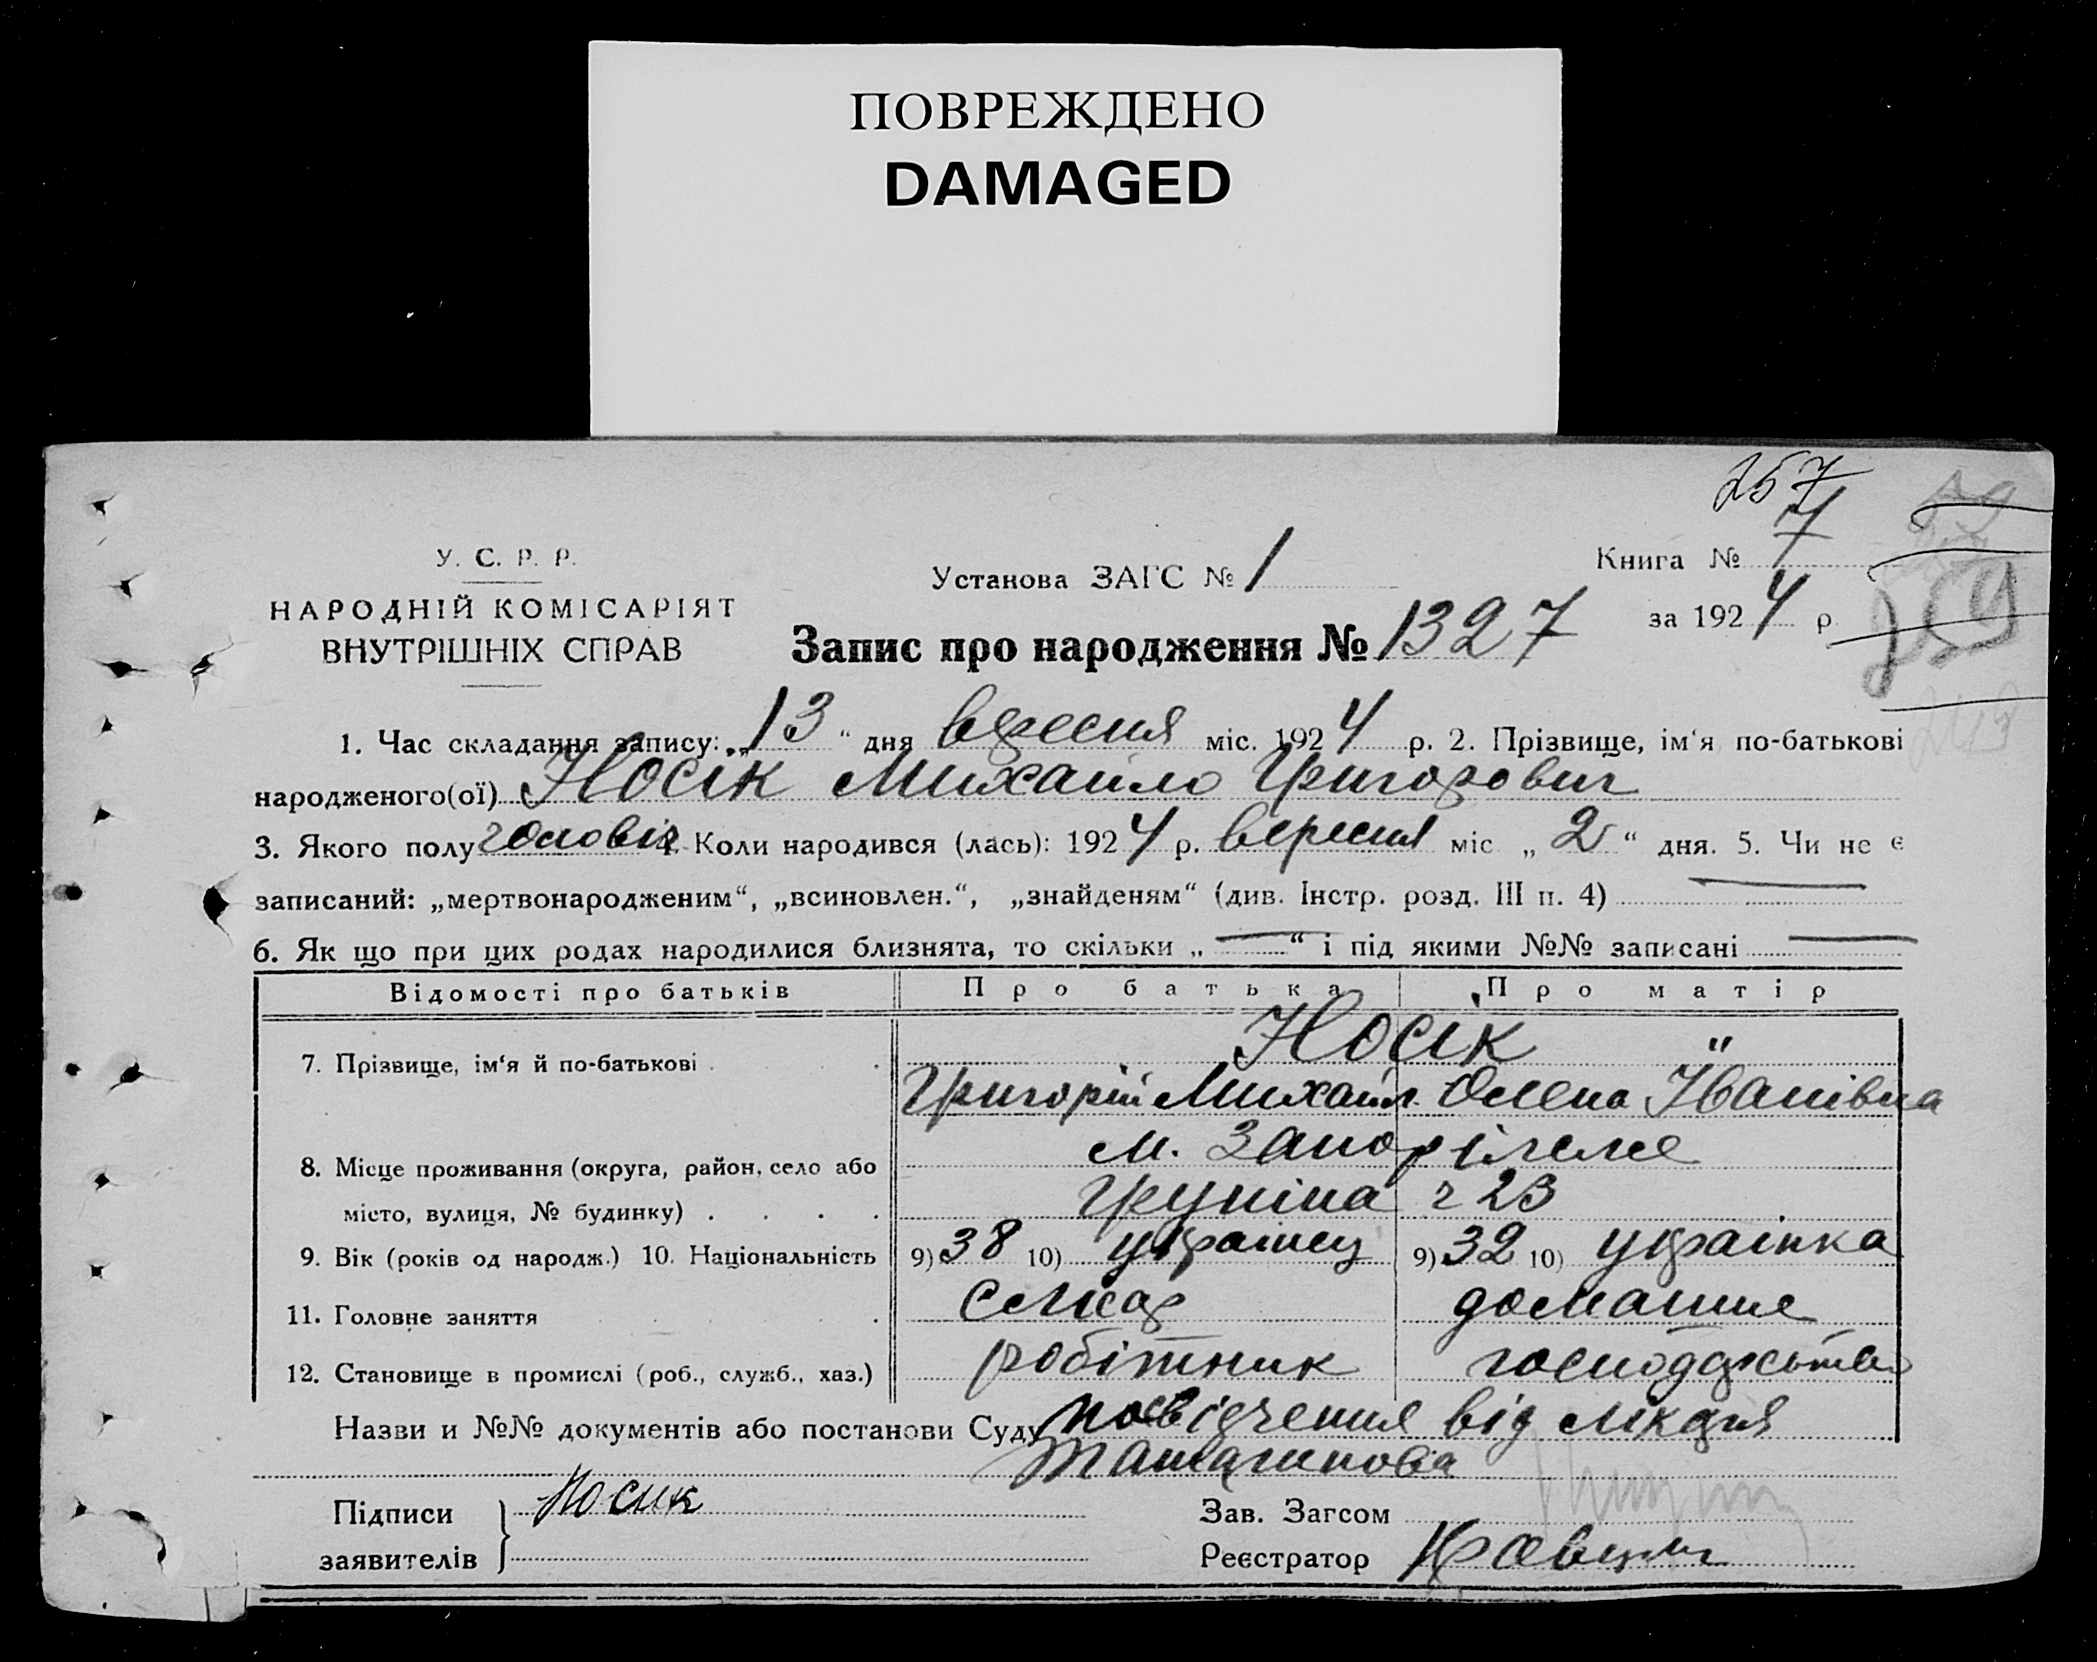 ПОВРЕЖДЕНО
DAMAGED
257
У. С. Р. Р.
НАРОДНІЙ КОМІСАРІЯТ
ВНУТРІШНІХ СПРАВ
Установа ЗАГС № 1
Книга № 7
за 1924 р.
259
Запис про народження № 1327
1. Час складання запису: „13“ дня вересня міс. 1924 р. 2. Прізвище, ім‘я, по-батькові
народженого(ої) Носік Михайло Григорович
3. Якого полу чоловіч. 4. Коли народився (лась): 1924 р. вересня міс „2“ дня. 5. Чи не є
записаний: „мертвонародженим“, „всиновлен.“, „знайденям“ (див. Інстр. розд. III п. 4) —
6. Як що при цих родах народилися близнята, то скільки „—“ і під якими №№ записані —
Відомості про батьків Про батька Про матір
7. Прізвище, ім‘я й по-батькові Носік "
Григорій Михайл. Олена Іванівна
8. Місце проживання (округа, район, село або м. Запоріжже
місто, вулиця, № будинку) ч 23
9. Вік (років од народж.) 10. Національність 9) 38 10) українец 9) 32 10) українка
11. Головне заняття слюсар домашнє
12. Становище в промислі (роб., служб., хаз.) робітник господарство
Назви и №№ документів або постанови Суду посвідчення від лікаря
Підписи
заявителів Носик
Зав. Загсом
Реєстратор